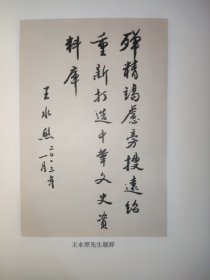 殚精竭虑旁搜远绍
重新打造中华文史资
料库
王水照
二〇一三年
一月
王水照先生题辞